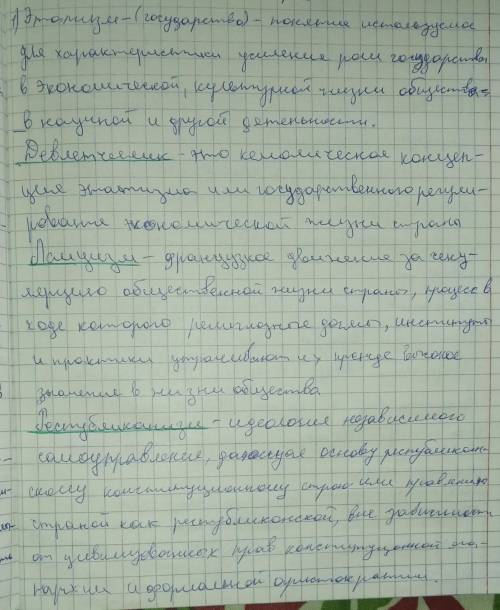 1) Этатизм - (государство) - понятие используемое
для характеристики усиление роли государства
в экономической, культурной жизни общества
в научной и другой детельности.
Девлетчеилик - это кемалическая концеп-
ция этатизма или государственного регули-
рования экономической жизни страны
Лаицизм - французкое движение за секу-
ляризацию общественной жизни страны, процесс в
ходе которого религиозные догмы, институты
и практики утрачивают их прежде высокое
значение в жизни общества.
Республиканизм - идеология независимого
самоуправление, дающая основу республикан-
скому конституционному строю или правлению
страной как республиканской, вне зависимости
от цивилизованных прав конституционной мо-
нархии и формальной аристократии.